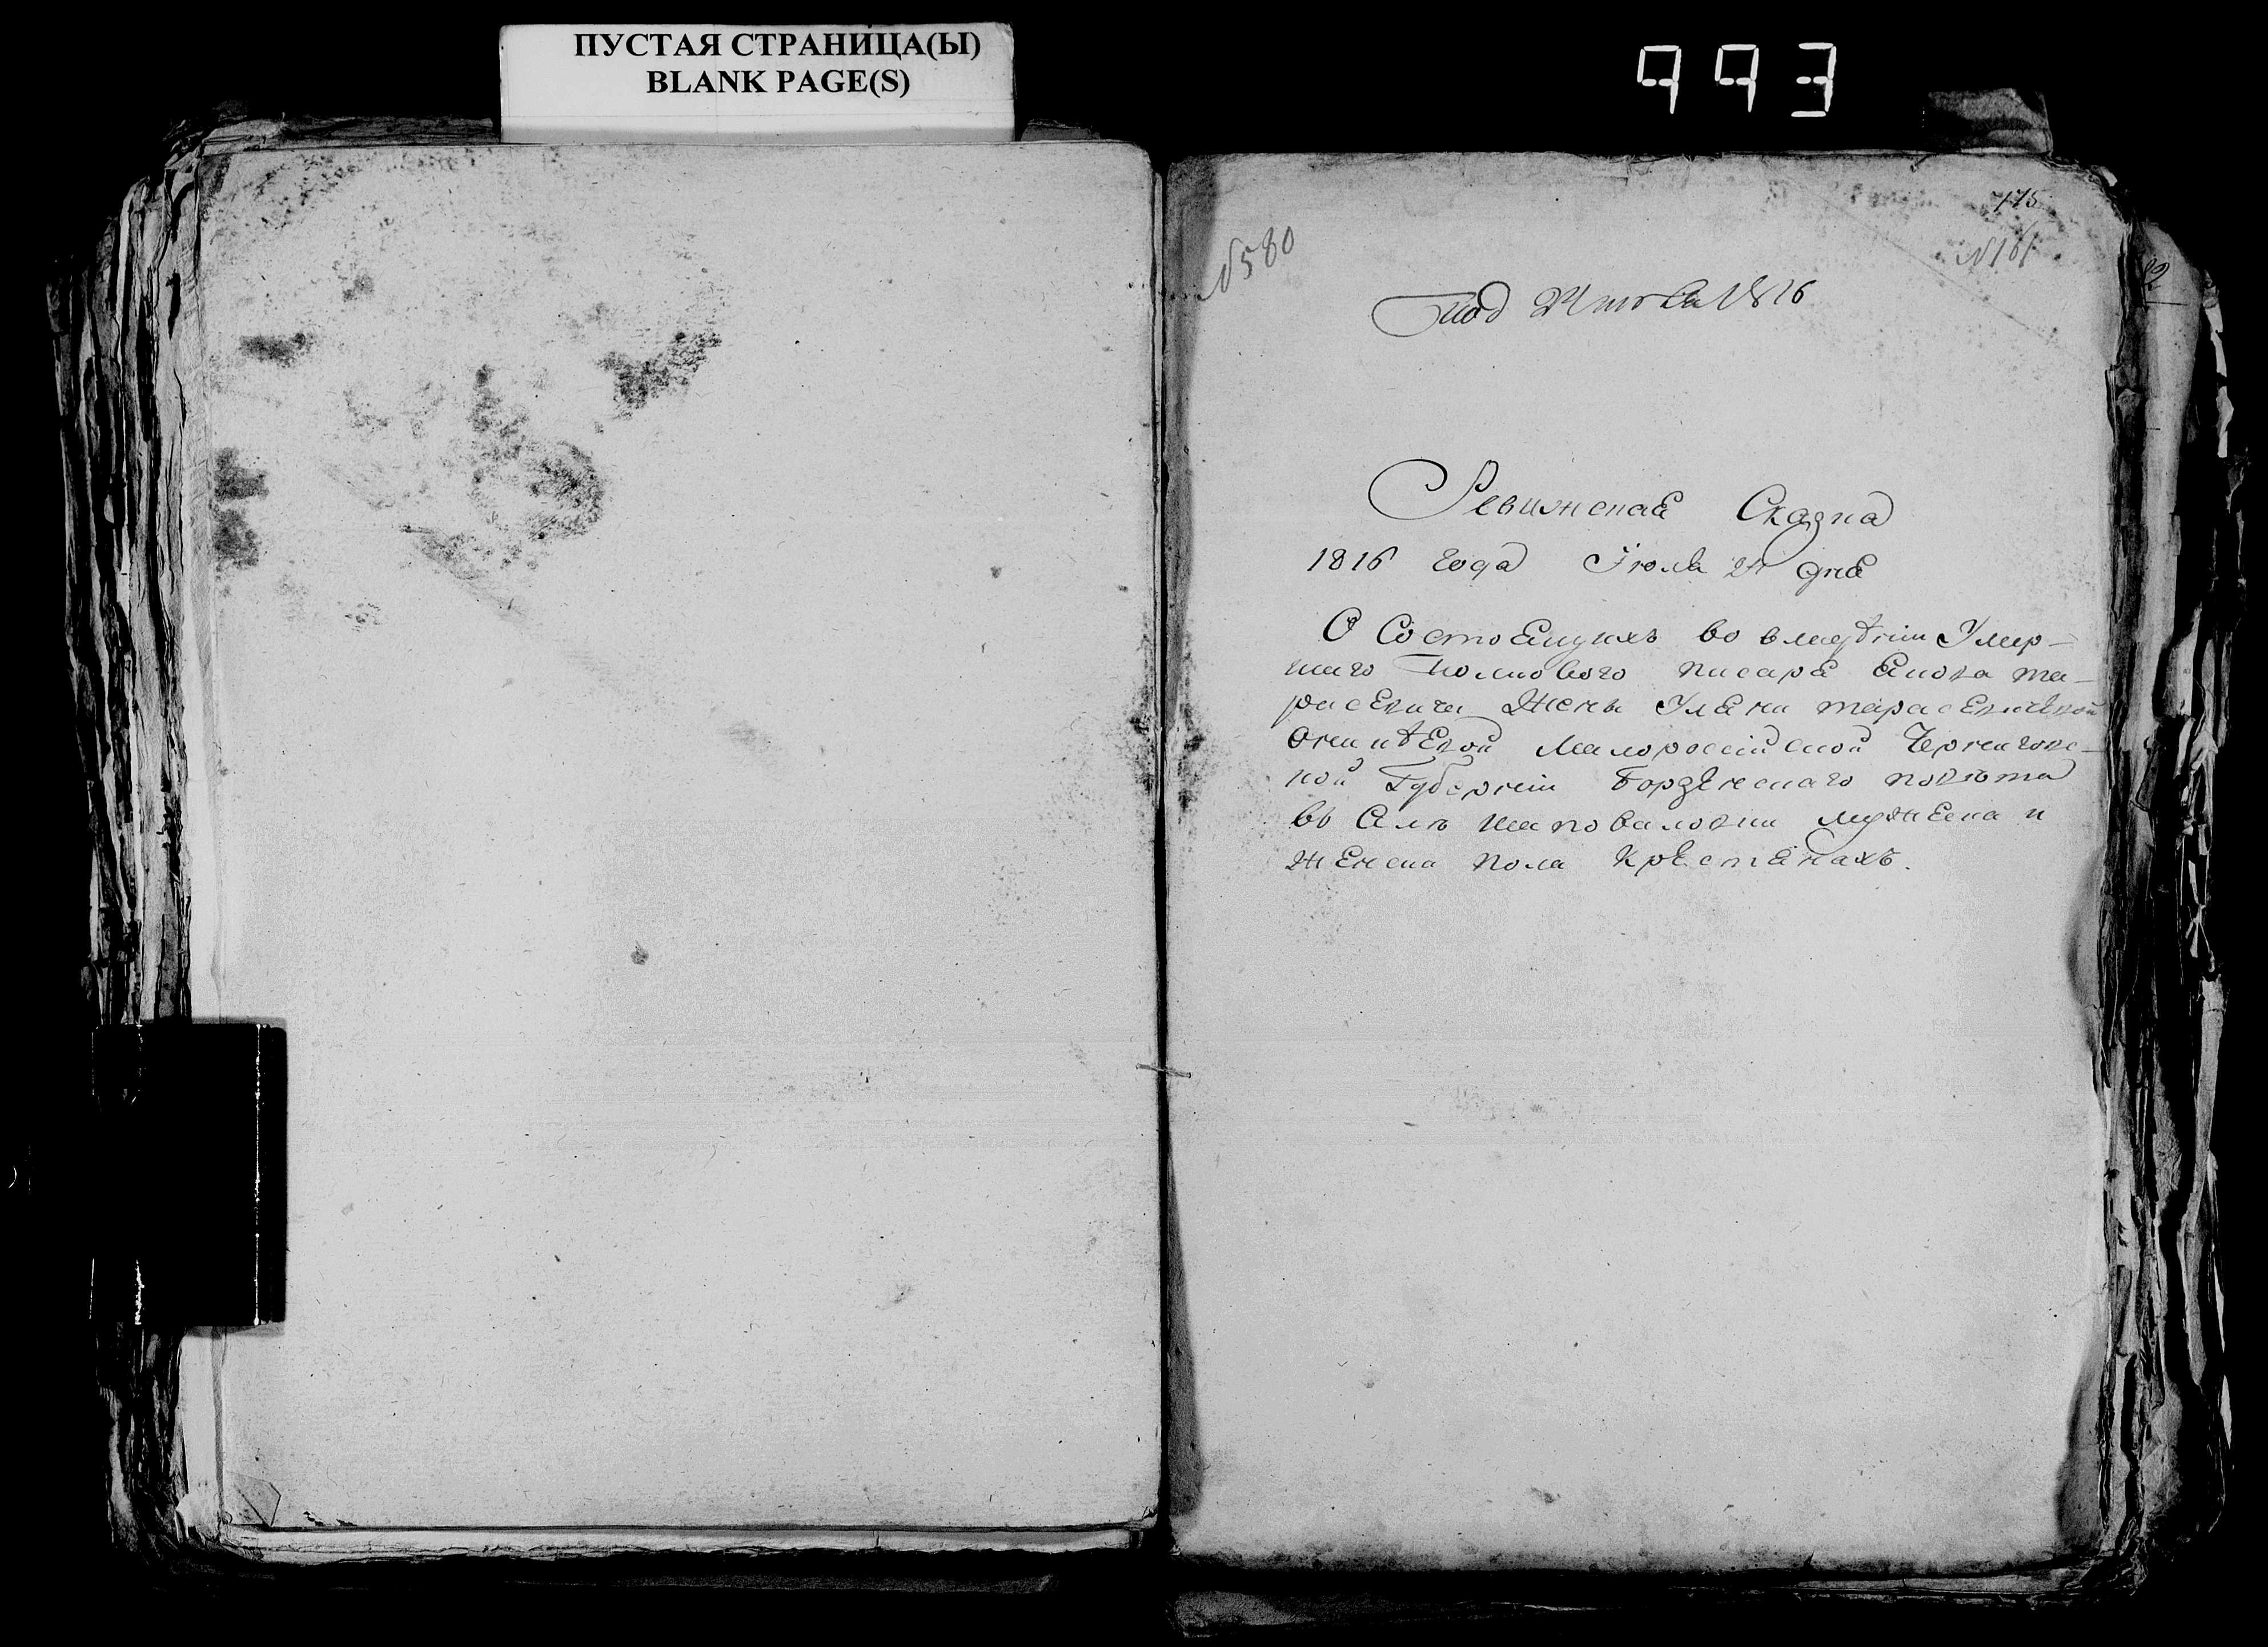 ПУСТАЯ СТРАНИЦА(Ы)
BLANK PAGE(S)
993
775
№580
№161
82
Под 24 Іюля 1816
Ревижская Сказка
1816 года Іюля 24 дня
О Состоящихъ во владѣніи Умер-
шаго Полкового писаря Якова та-
расевича Жены Уляни тарасевичевой
Малороссійской Черниговс-
кой Губерніи Борзенскаго повѣта
въ Селѣ Шаповаловки мужеска и
женска пола Крестянахъ.